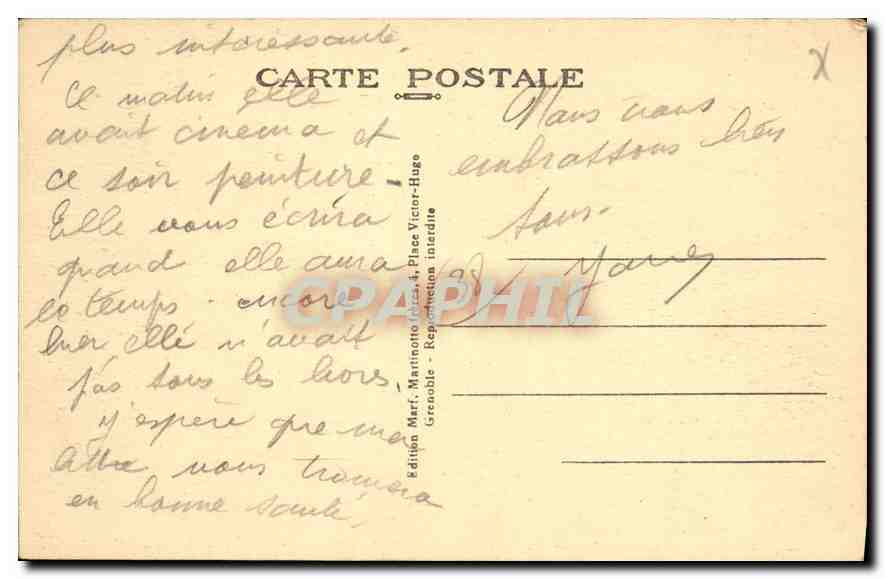 plus intéressante.
CARTE POSTALE
Ce matin elle
avait cinema et
ce soir peinture -
Elle vous écrira
quand elle aura
le temps. encore
hier elle n'avait
pas tous les livres.
J'espère que ma
lettre vous trouvera
en bonne santé,
Edition Marf, Martinotto frères, 4, Place Victor-Hugo
Grenoble - Reproduction interdite
Nous vous
embrassons bien
tous.
38
CPAPHIL